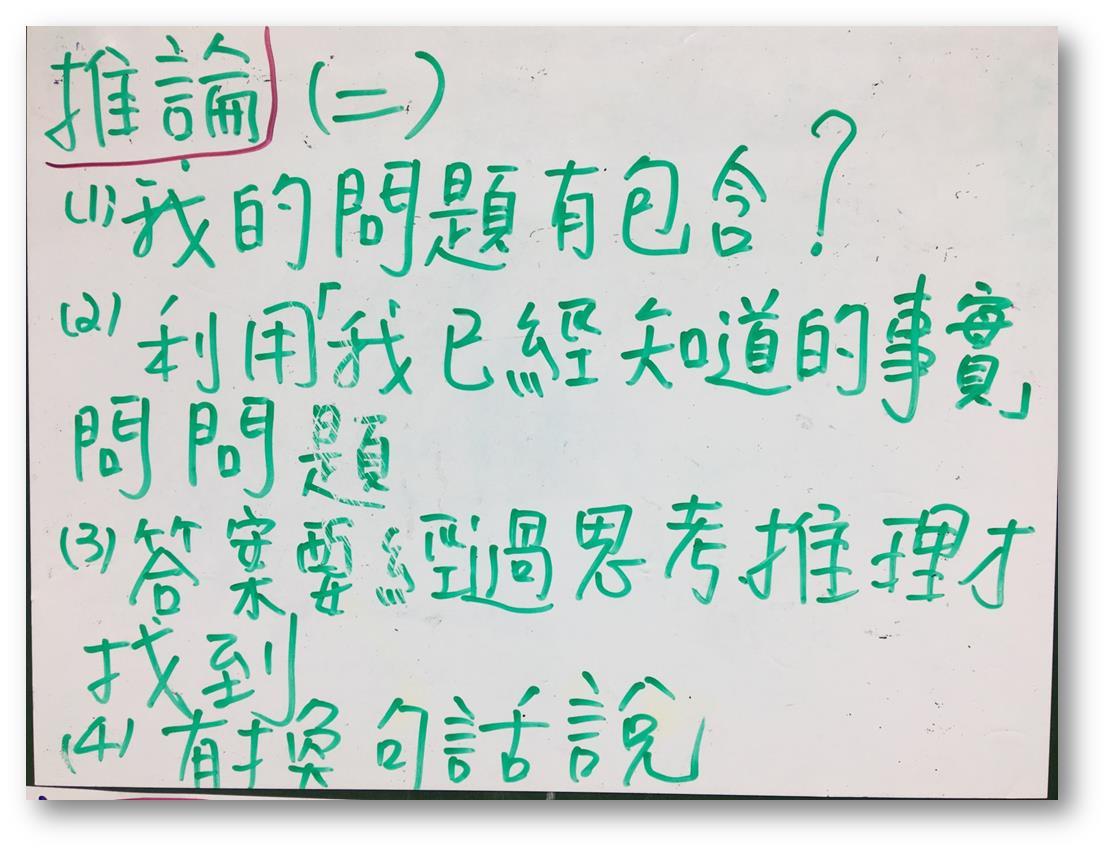 推論(二)
(1)我的問題有包含?
(2)利用「我已經知道的事實」
問問題
(3)答案要經過思考推理才
找到
(4)有換句話說